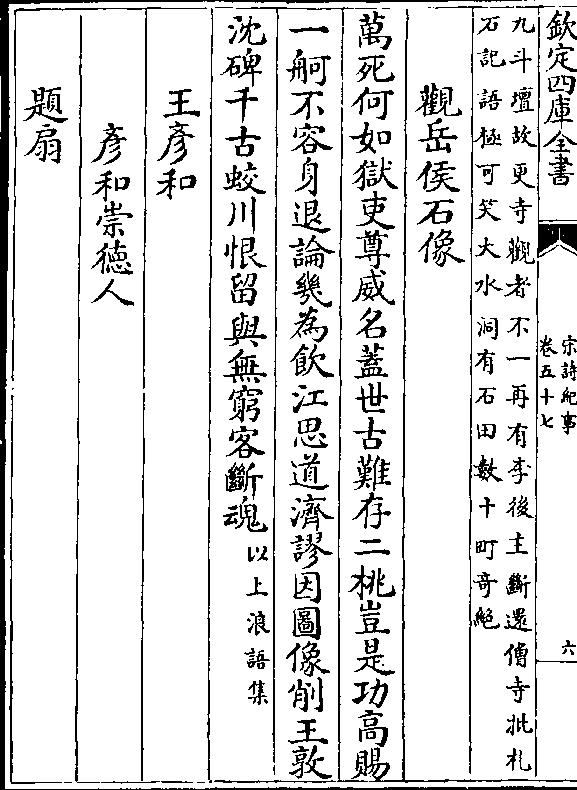 欽定四庫全書
宋詩紀事
卷五十七
六
九斗壇故更寺觀者不一再有李後主斷還傳寺批札
石記語極可笑大水洞有石田數十町奇絶
觀岳侯石像
萬死何如獄吏尊威名蓋世古難存二桃豈是功高賜
一舸不容身退論幾為飲江思道濟謬因圖像削王敦
沈碑千古蛟川恨留與無窮客斷魂以上浪語集
王彥和
彥和崇德人
題扇